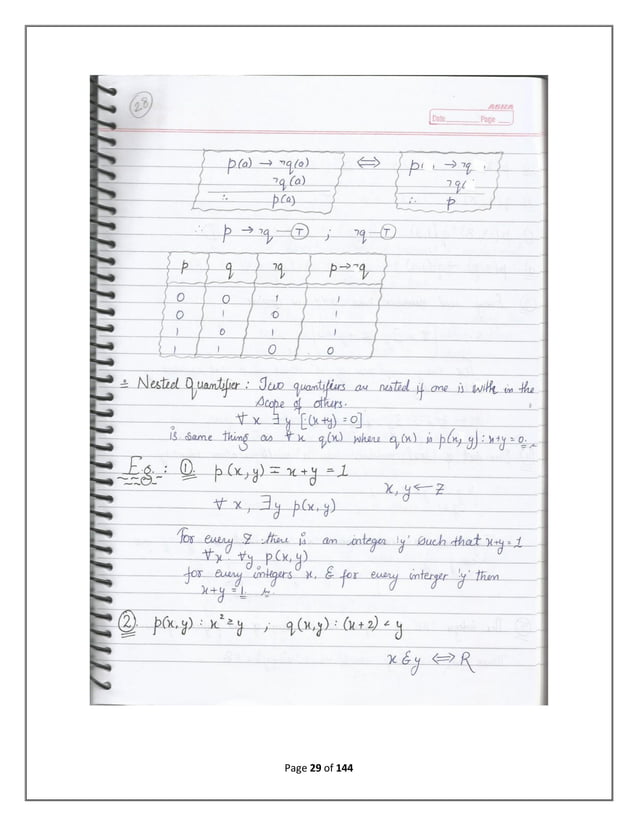 28
ABRA
Date Page
p(a) → ¬q(a) ⟺ p → ¬q
¬q(a) ¬q
∴ p(a) ∴ p
∴ p → ¬q — T ; ¬q — T
p q ¬q p→¬q
0 0 1 1
0 1 0 1
1 0 1 1
1 1 0 0
Nested Quantifier : Two quantifiers are nested if one is with in the
scope of others.
∀ x ∃ y [(x+y) = 0]
is same thing as ∀ x q(x) where q(x) is p(x, y) : x+y = 0.
E.g. : 1. p(x,y) = x + y = 1
x, y ← Z
∀ x, ∃ y p(x,y)
For every Z there is an integer 'y' such that x+y = 1
∀x ∀y p(x,y)
for every integers x, & for every interger 'y' then
x+y = 1.
2. p(x,y) : x² ≥ y ; q(x,y) : (x+2) < y
x & y ⟺ R
Page 29 of 144